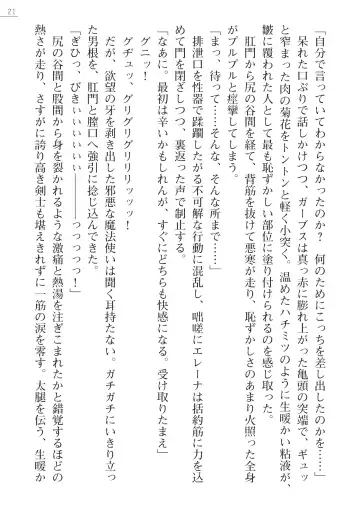 21
「自分で言っていてわからなかったのか？　何のためにこっちを差し出したのかを……」
呆れた口ぶりで話しかけつつ、ガーブスは真っ赤に膨れ上がった亀頭の突端で、ギュッ
と窄まった肉の菊花をトントンと軽く小突く。温めたハチミツのように生暖かい粘液が、
皺に覆われた人として最も恥ずかしい部位に塗り付けられるのを感じ取った。
肛門から尻の谷間を経て、背筋を抜けて悪寒が走り、恥ずかしさのあまり火照った全身
がプルプルと痙攣してしまう。
「まっ、待って……そんな、そんな所まで……」
排泄口を性器で蹂躙したがる不可解な行動に混乱し、咄嗟にエレーナは括約筋に力を込
めて門を閉ざしつつ、裏返った声で制止する。
「なぁに。最初は辛いかもしれんが、すぐにどちらも快感になる。受け取りたまえ」
グニー！
グヂュッ、グリグリグリリリッッッ！
だが、欲望の牙を剥き出した邪悪な魔法使いは聞く耳持たない。ガチガチにいきり立っ
た男根を、肛門と膣口へ強引に捻じ込んできた。
「ぎひっ、びきぃぃぃぃぃぃ――――っつっつっつっ！」
尻の谷間と股間から身を裂かれるような激痛と熱湯を注ぎこまれたかと錯覚するほどの
熱さが走り、さすがに誇り高き剣士も堪えきれずに一筋の涙を零す。太腿を伝う、生暖か